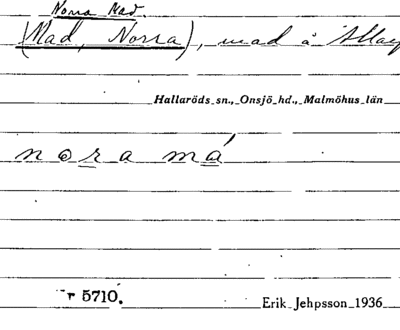 Norra Mad.
(Mad, Norra), mad å
Hallaröds sn., Onsjö hd., Malmöhus län
nora má
r 5710.
Erik Jehpsson 1936